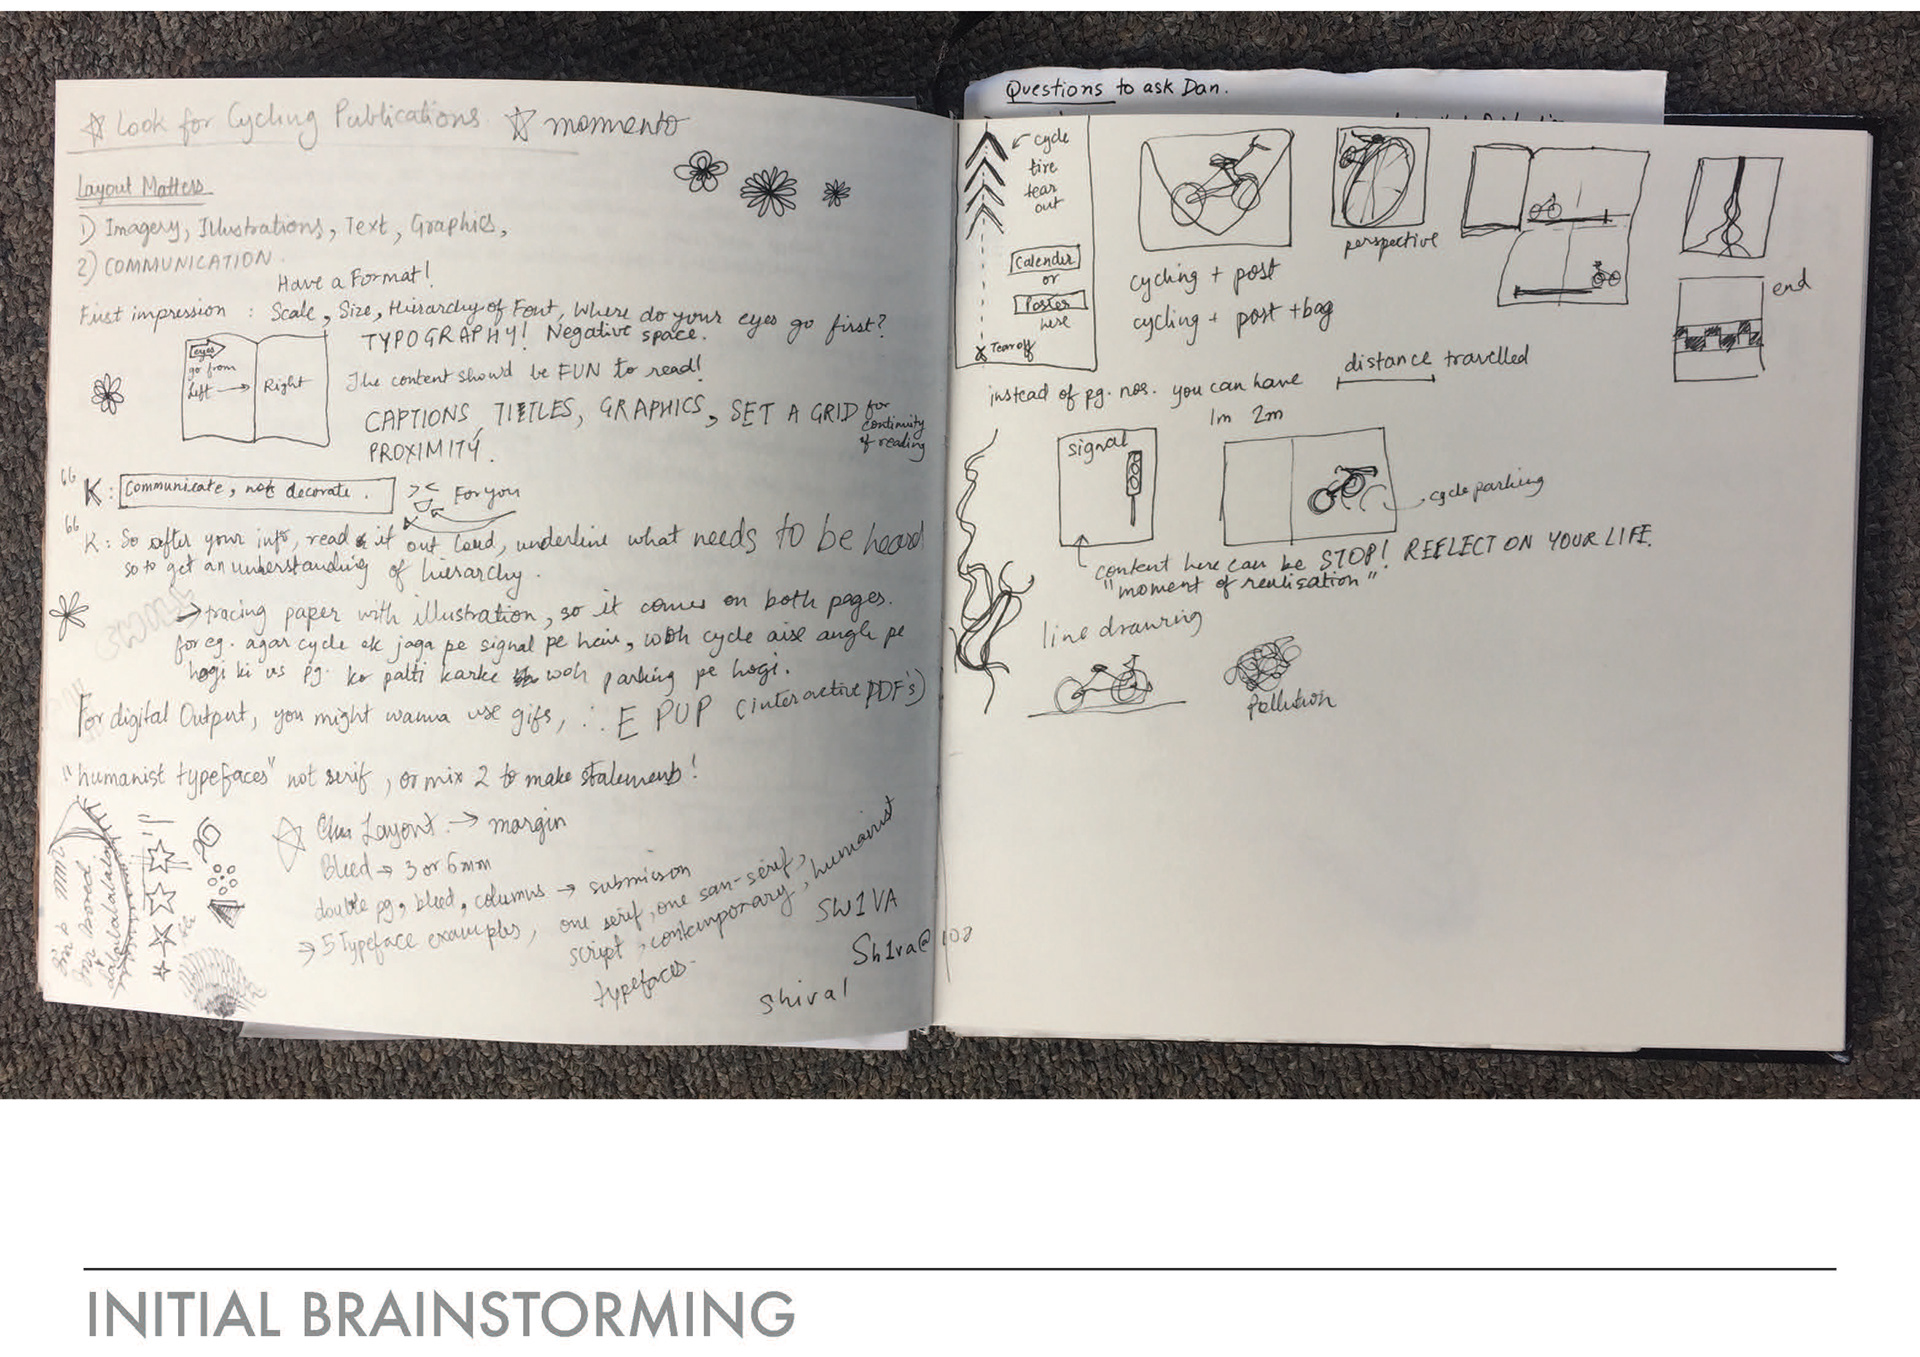 Look for Cycling Publications momento
Layout Matters
1) Imagery, Illustrations, Text, Graphics,
2) COMMUNICATION.
Have a Format!
First impression : Scale, Size, Hirarchy of Font, Where do your eyes go first?
TYPOGRAPHY! Negative space.
eyes
go from
Left → Right
The content should be FUN to read!
CAPTIONS, TITLES, GRAPHICS, SET A GRID for
continuity
of reading
PROXIMITY.
" K: Communicate, not decorate. For you
" K: So after your info, read it out loud, underline what needs to be heard
so to get an understanding of hierarchy.
→ tracing paper with illustration, so it comes on both pages.
for eg. agar cycle ek jaga pe signal pe hain, woh cycle aise angle pe
hogi ki us pg. ko palti karke woh parking pe hogi.
For digital Output, you might wanna use gifs, ∴ E PUP (interactive PDF's)
"humanist typefaces" not serif, or mix 2 to make statement!
Layout → margin
Bleed → 3 or 6mm
double pg, bleed, columns → submission
→ 5 Typeface examples, one serif, one san-serif,
script, contemporary, humanist
typefaces.
SW1VA
Sh1va@108
Shiva1
Questions to ask Dan.
cycle
tire
tear
out
Calender
or
Poster
here
x Tear off
cycling + post
cycling + post + bag
perspective
end
instead of pg. nos. you can have distance travelled
1m 2m
signal
cycle parking
content here can be STOP! REFLECT ON YOUR LIFE.
"moment of realisation"
line drawing
Pollution
INITIAL BRAINSTORMING